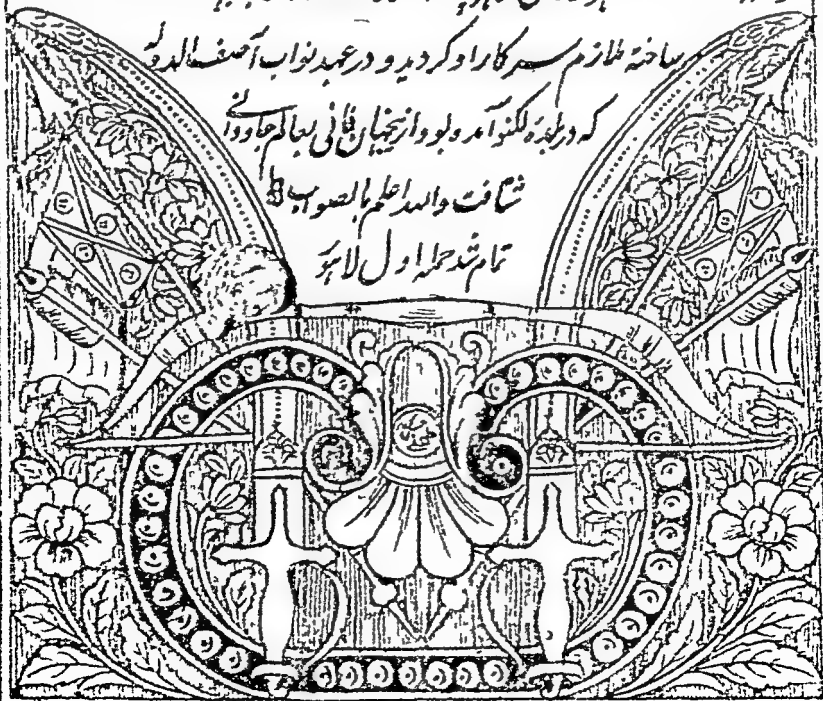 ساخته ملازم سرکار او کردید و در عهد نواب آصف الدوله
که در بلدهٔ لکنو آمده بود از ینجهان فانی بعالم جاودانے
شتافت والله اعلم بالصواب
تمام شد حمله اول